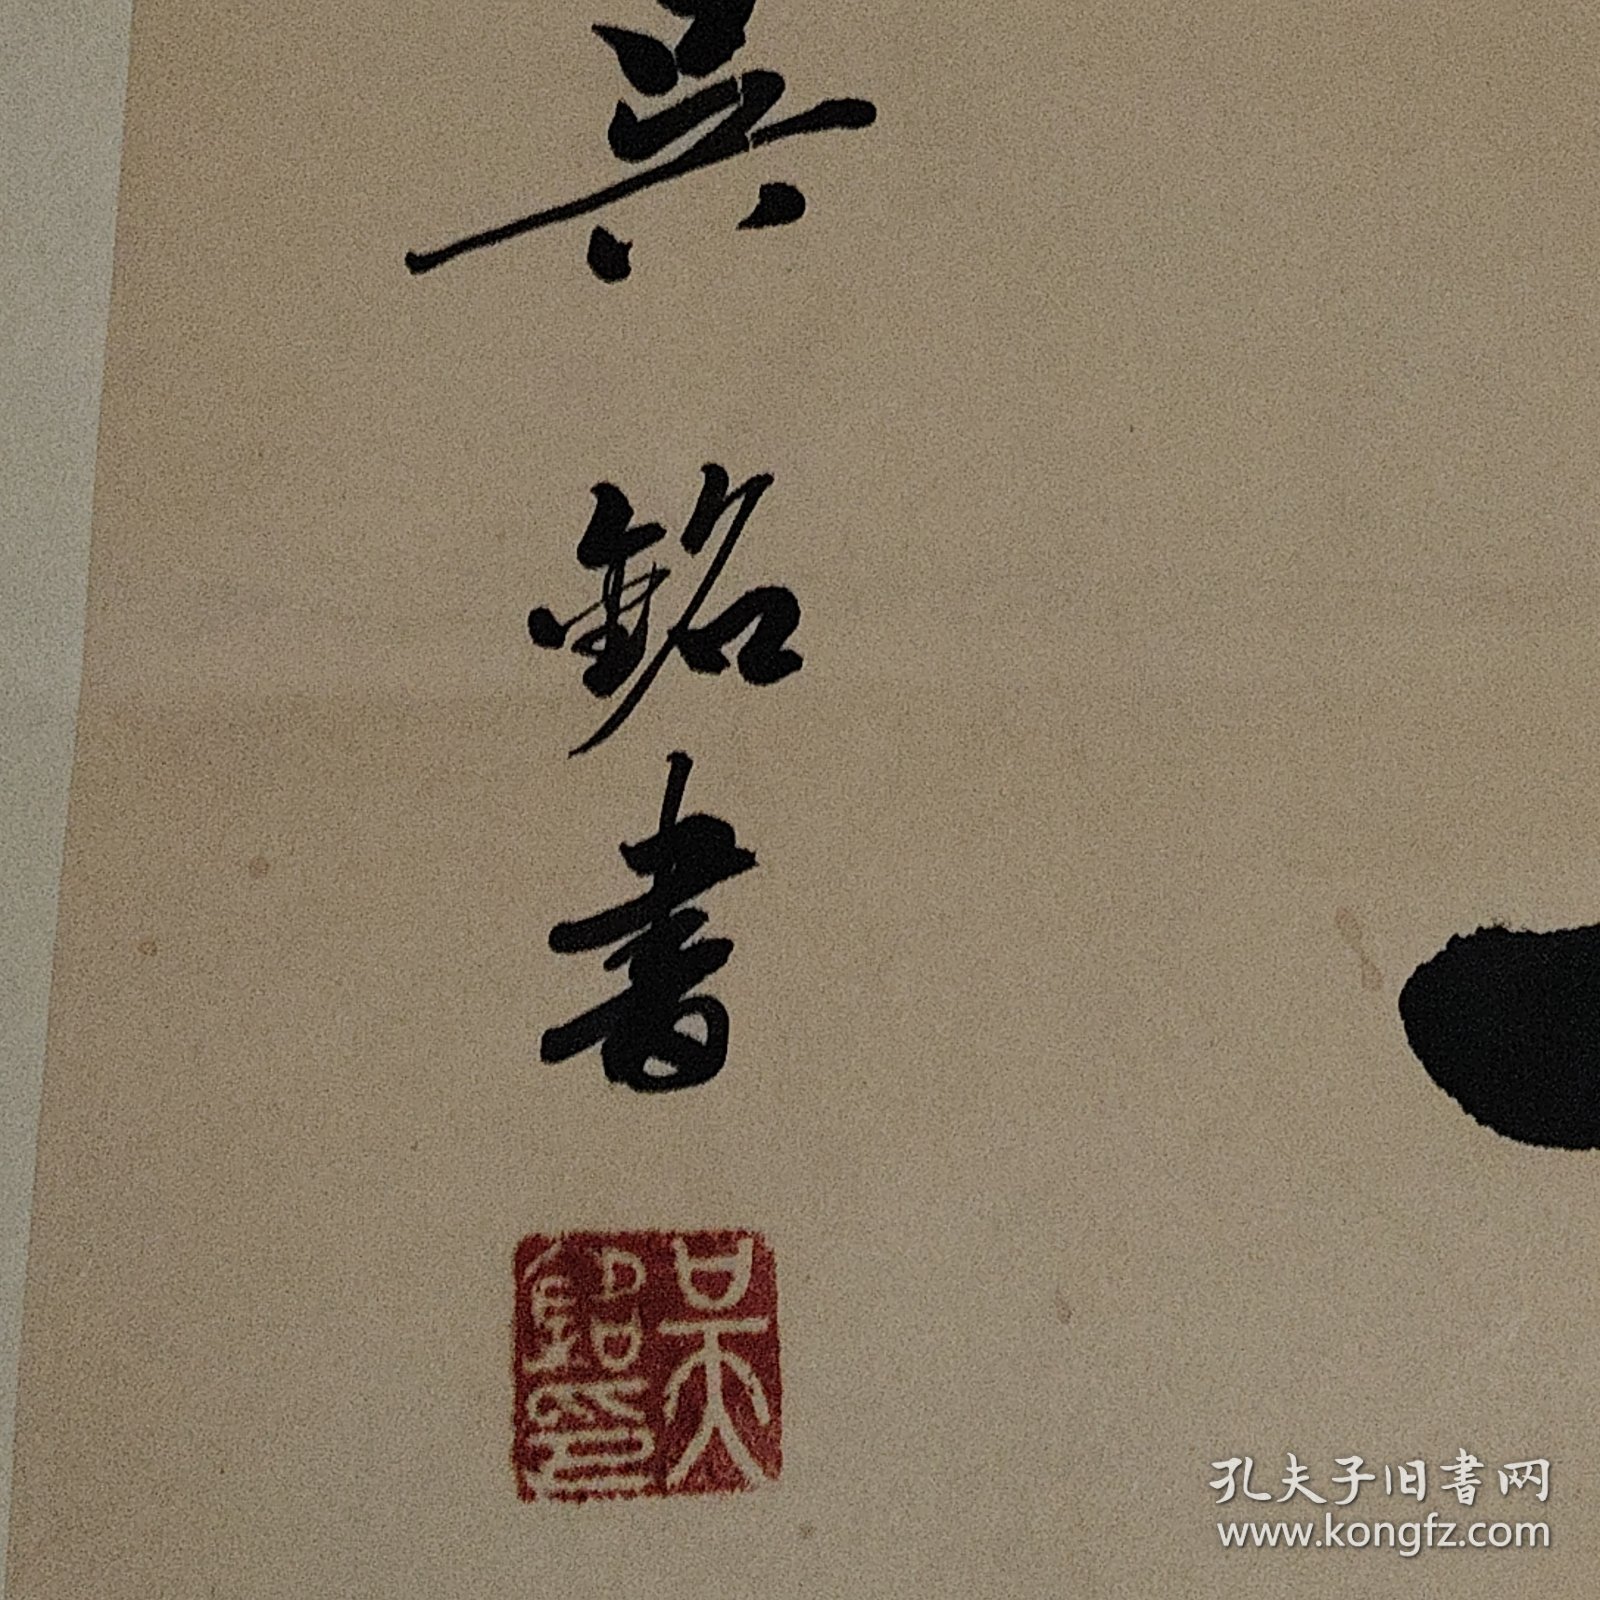 吳
銘
書
吳銘印
孔夫子旧書网
www.kongfz.com